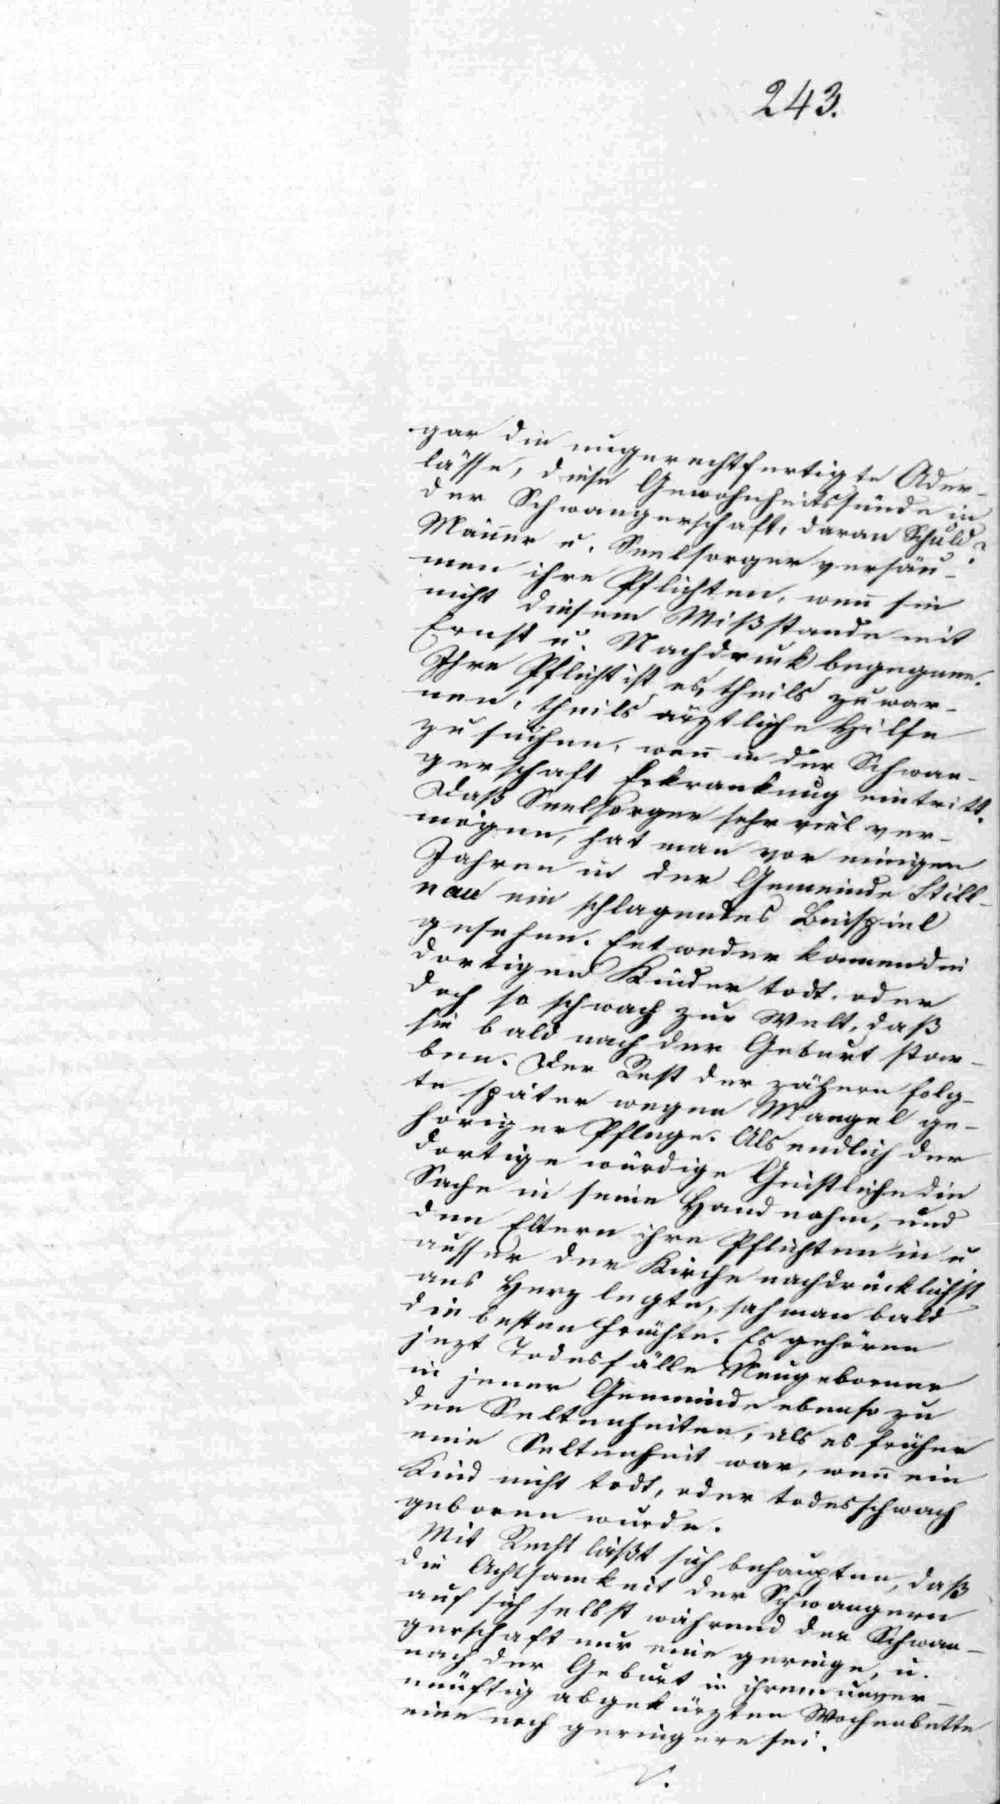 243.
gar die ungerechtfertigte Ader-
lässe, diese Gewohnheitssünde in
der Schwangerschaft, daran Schuld?
Mäner u. Seelsorger versäu-
men ihre Pflichten, wen sie
nicht diesem Mißstande mit
Ernst u. Nachdruck begegnen.
Ihre Pflicht ist es, theils zu war-
nen, theils ärztliche Hilfe
zu suchen, wen in der Schwan-
gerschaft Erkrankung eintritt.
Daß Seelsorger sehr viel ver-
mögen, hat man vor einigen
Jahren in der Gemeinde Still-
nau ein schlagendes Beispiel
gesehen. Entweder kamen die
dortigen Kinder todt, oder
doch so schwach zur Welt, daß
sie bald nach der Geburt star-
ben. Der Rest der zähern folg-
te später wegen Mangel ge-
höriger Pflege. Als endlich der
dortige würdige Geistliche die
Sache in seine Hand nahm, und
den Eltern ihre Pflichten in u
ausser der Kirche nachdrücklichst
ans Herz legte, sah man bald
die besten Früchte. Es gehören
jezt Todesfälle Neugeborner
in jener Gemeinde ebenso zu
den Seltenheiten, als es früher
eine Seltenheit war, wen ein
Kind nicht todt, oder todesschwach
geboren wurde.
Mit Recht läßt sich behaupten, daß
die Achtsamkeit der Schwangern
auf sich selbst während der Schwan-
gerschaft nur eine geringe, u.
nach der Geburt in ihrem unver-
nünftig abgekürzten Wochenbette
eine noch geringere sei.